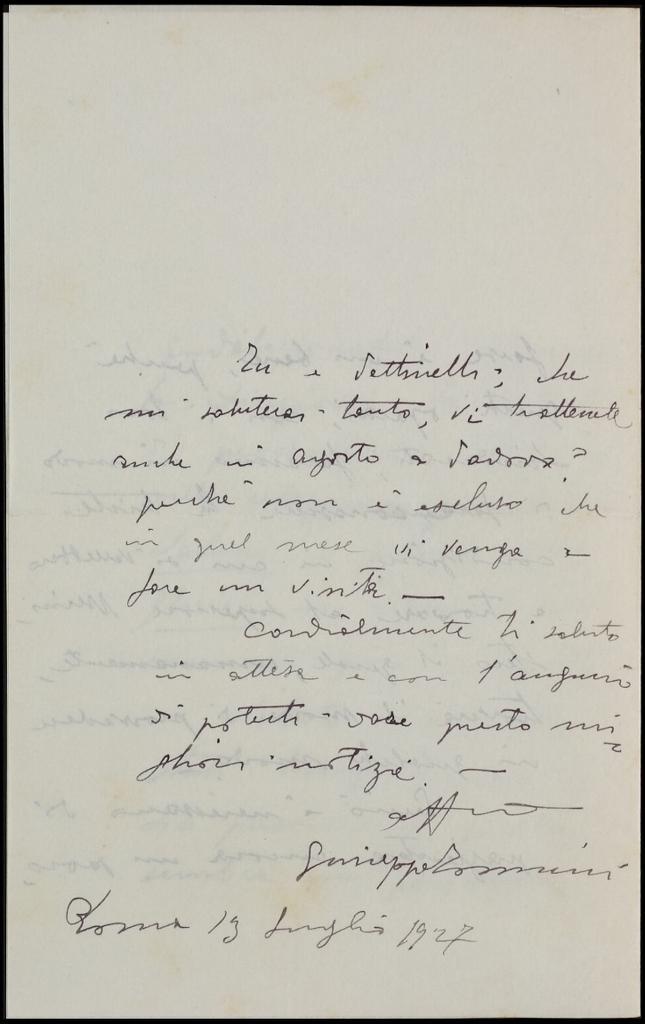 Tu e Settinelli, che
mi saluterai tanto, vi trattenete
anche in agosto a Padova?
perché non è escluso che
in quel mese vi venga a
fare un visita. —
Cordialmente ti saluto
in attesa e con l'augurio
di poterti dare presto mi=
gliori notizie. —
aff
Giuseppe Tommasini
Roma 13 luglio 1927